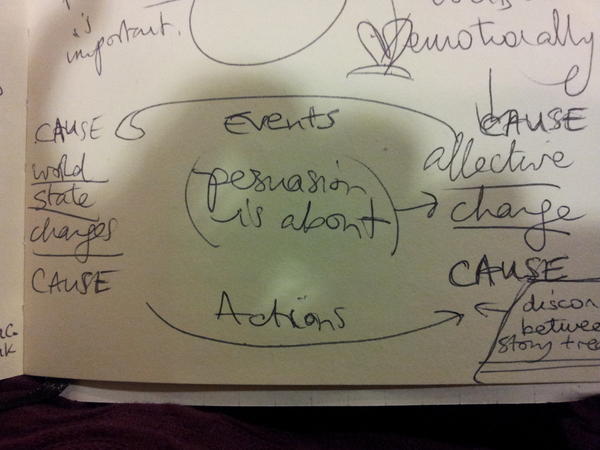 is
important.
emotionally
CAUSE
Events
CAUSE
world
state
changes
CAUSE
(persuasion
is about)
affective
change
CAUSE
Actions
discon
between
story tre